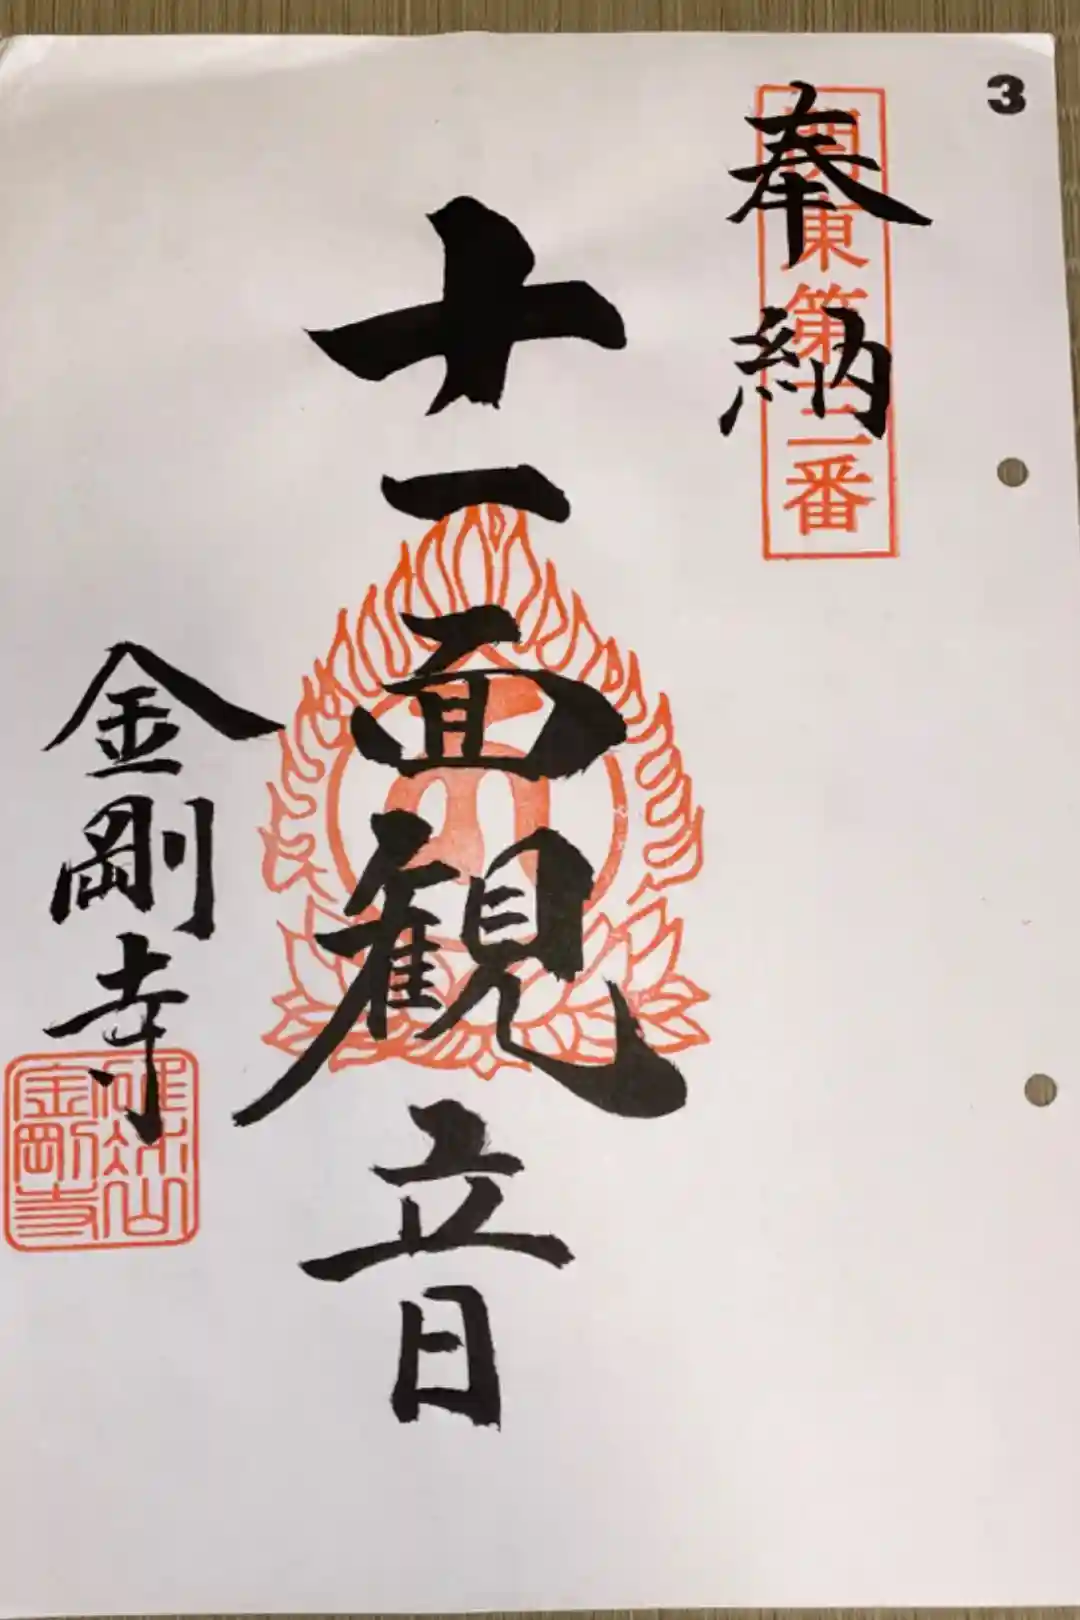 3
奉納
関東第三番
十一面観音
金剛寺
金剛寺